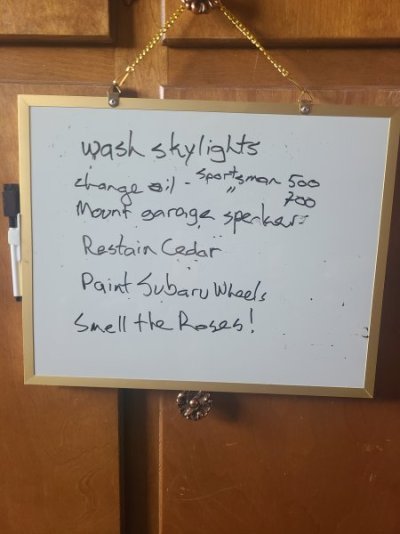 wash skylights
change oil - Sportsman 500
" 700
Mount garage speakers
Restain Cedar
Paint Subaru Wheels
Smell the Roses!